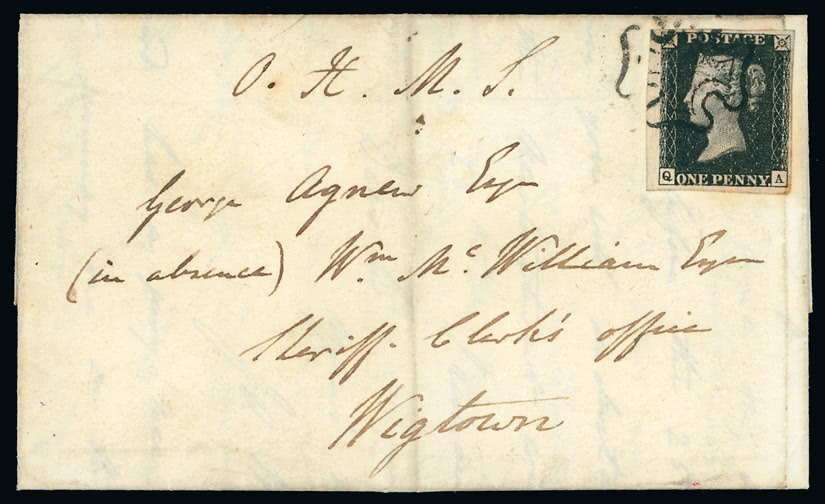 POSTAGE
Q ONE PENNY. A
O. H. M. S.
George Agnew Esqr
(in absence) Wm Mc. William Esqr
Sheriff Clerk's office
Wigtown